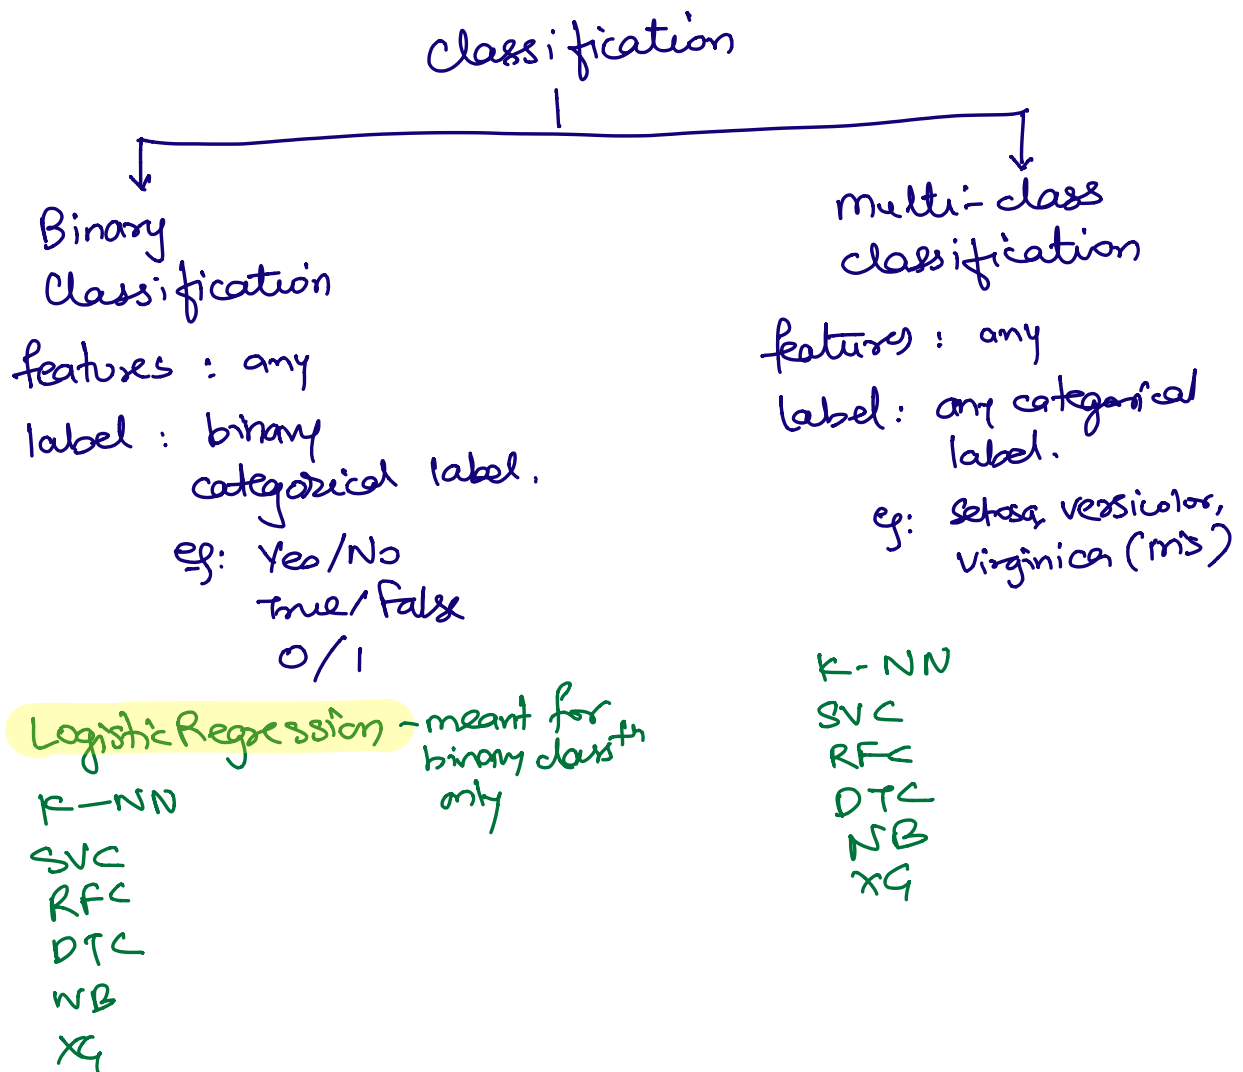 Classification
Binary
Classification
features : any
label : binary
categorical label.
eg: Yes/No
True/False
0/1
Logistic Regression - meant for
binary class<sup>tn</sup>
only
K-NN
SVC
RFC
DTC
NB
XG
Multi-class
classification
features : any
label : any categorical
label.
eg: setosa, versicolor,
virginica (
K-NN
SVC
RFC
DTC
NB
XG